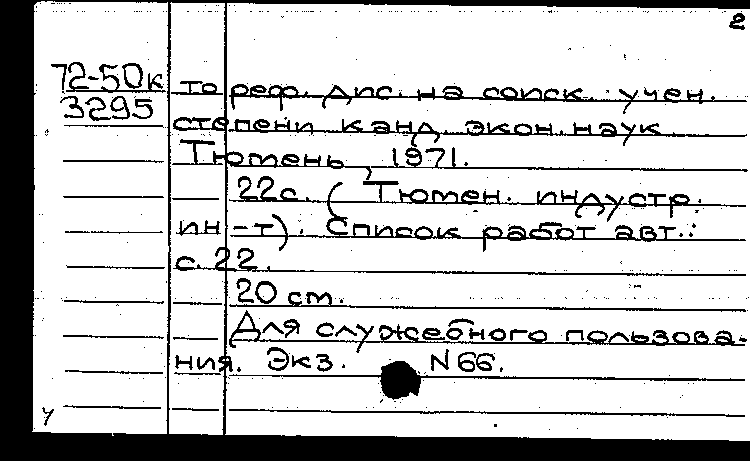 2
72-50к
3295
то реф. дис. на соиск. учен.
степени канд. экон. наук
Тюмень, 1971.
22с. (Тюмен. индустр.
ин-т). Список работ авт.:
с. 22.
20 см.
Для служебного пользова-
ния. Экз. N 66.
У